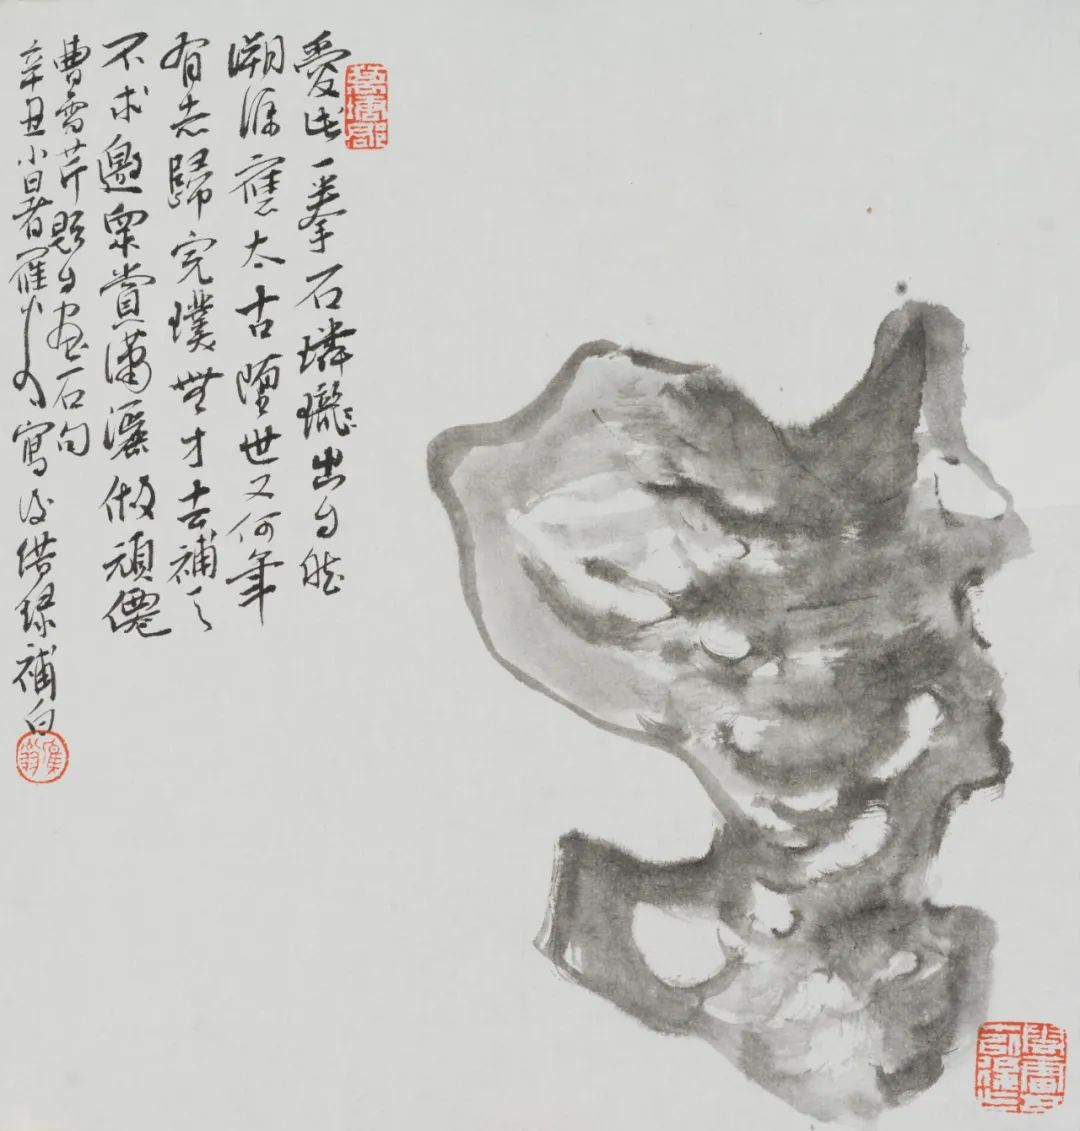 愛此一拳石璘瓏出自然
溯源應太古墮世又何年
有志歸完璞無才去補天
不求邀衆賞瀟灑做頑僊
曹雪芹題自畫石句
辛丑小暑 寫 補白